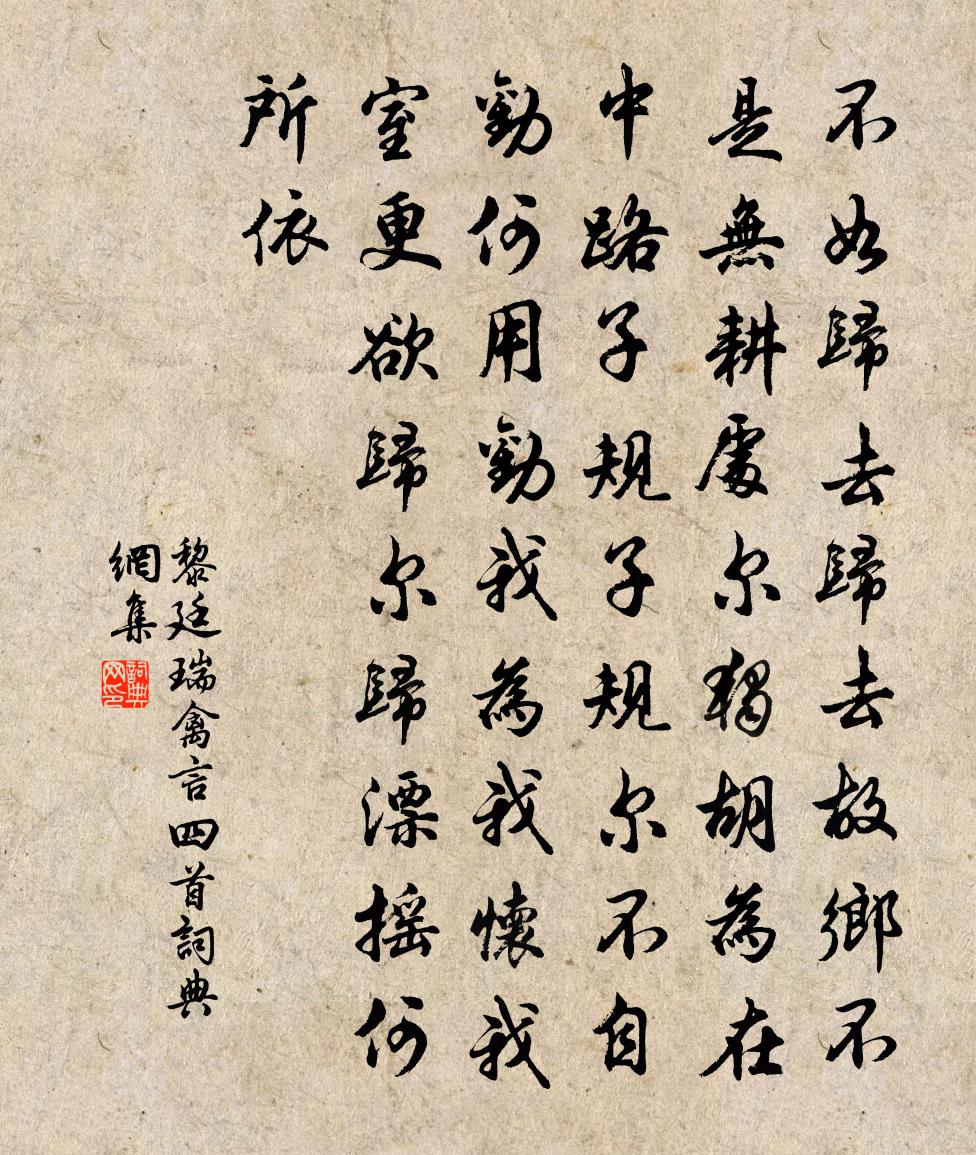 不如歸去歸去故鄉不
是無耕處尔獨胡為在
中路子規子規尔不自
勸何用勸我為我懷我
室更欲歸尔歸漂摇何
所依
黎廷瑞禽言四首詞典
網集
詞典网印